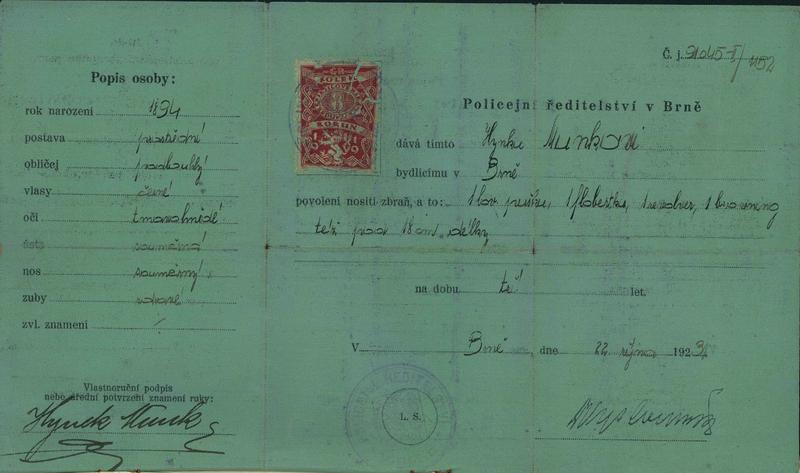 Popis osoby:
rok narození 1894
postava prostřední
obličej podlouhlý
vlasy černé
oči tmavohnědé
ústa souměrná
nos souměrný
zuby zdravé
zvl. znamení /
Vlastnoruční podpis
nebo úřední potvrzení znamení ruky:
Hynek Munk
8
KOLEK
KORUN
1919
Č. j.
Policejní ředitelství v Brně
dává tímto Hynku Munkovi
bydlícímu v Brně
povolení nositi zbraň, a to: 1 lov. pušku, 1 flobertku, 1 revolver, 1 browning
též pod 18 cm. délky
na dobu tří let.
V Brně, dne 22 října 192
L. S.